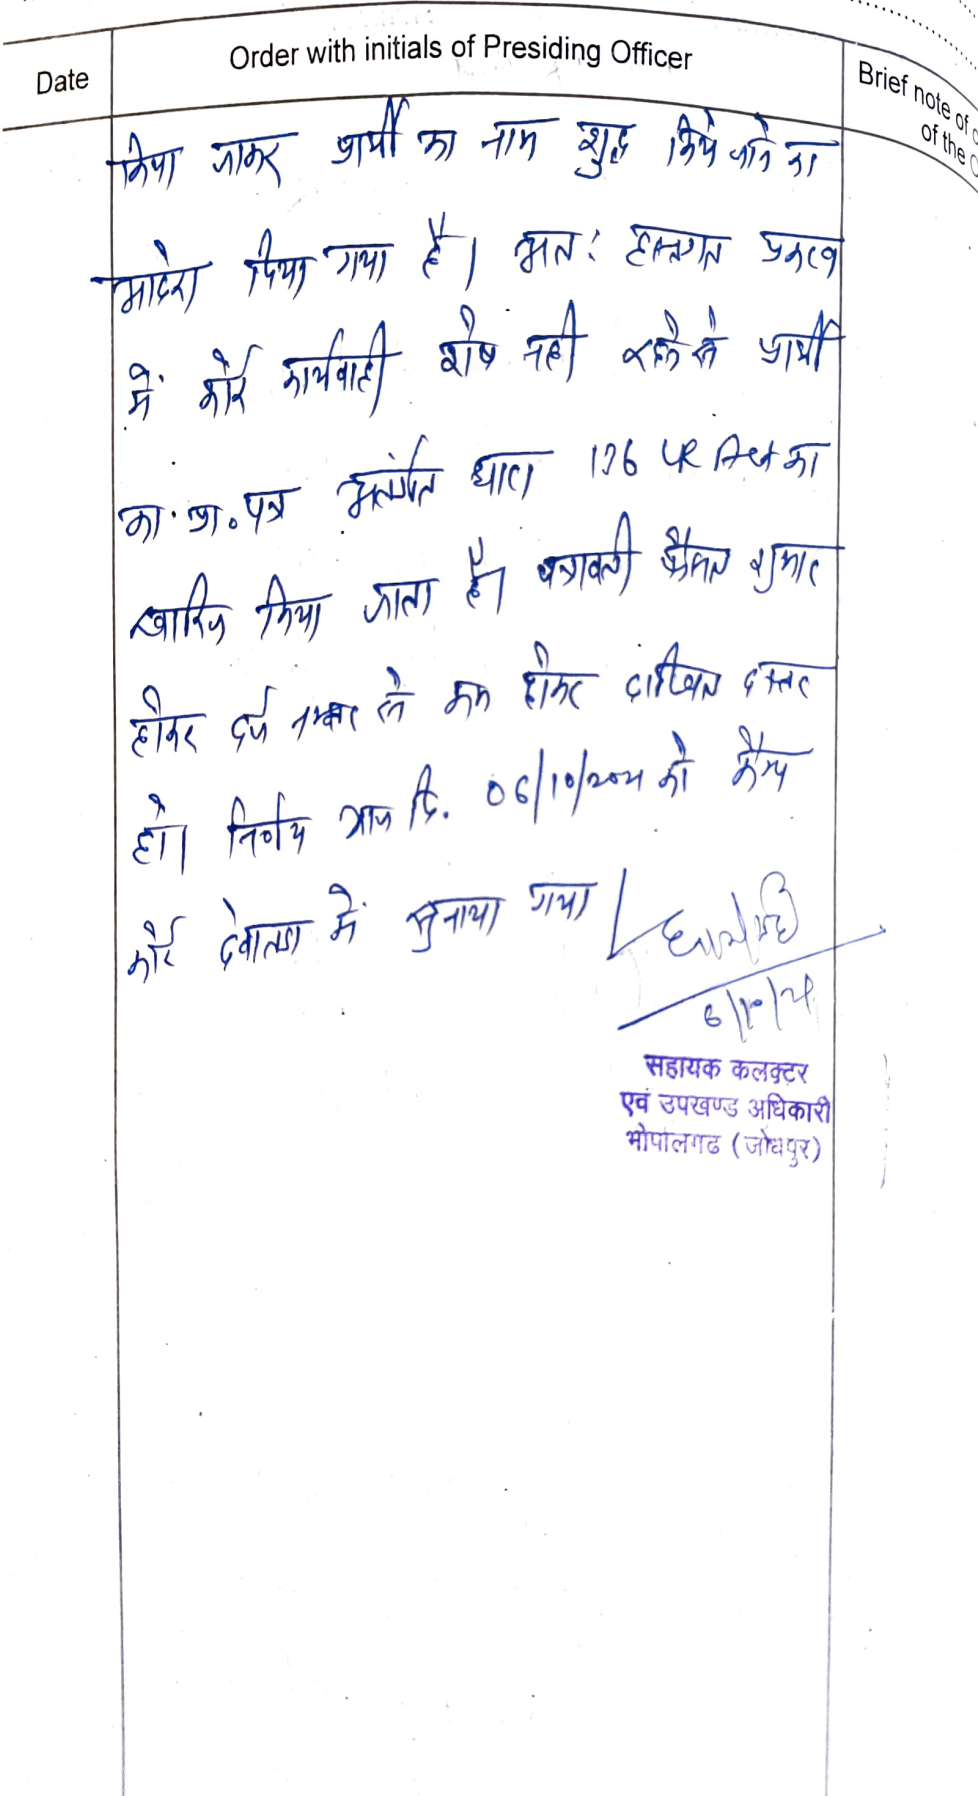 Date
Order with initials of Presiding Officer
Brief note of
of the
किया जाकर प्रार्थी का नाम शुद्ध किये जाने का
आदेश दिया गया है। अतः हस्तगत प्रकरण
में कोई कार्यवाही शेष नही रहने से प्रार्थी
का प्रा. पत्र अन्तर्गत धारा 136 LR Act का
खारिज किया जाता है। पत्रावली फैसल शुमार
होकर दर्ज नम्बर से कम होकर दाखिल दफ्तर
हो। निर्णय आज दि. 06/10/2021 को कैम्प
कोर्ट में सुनाया गया
6/10/21
सहायक कलक्टर
एवं उपखण्ड अधिकारी
भोपालगढ (जोधपुर)